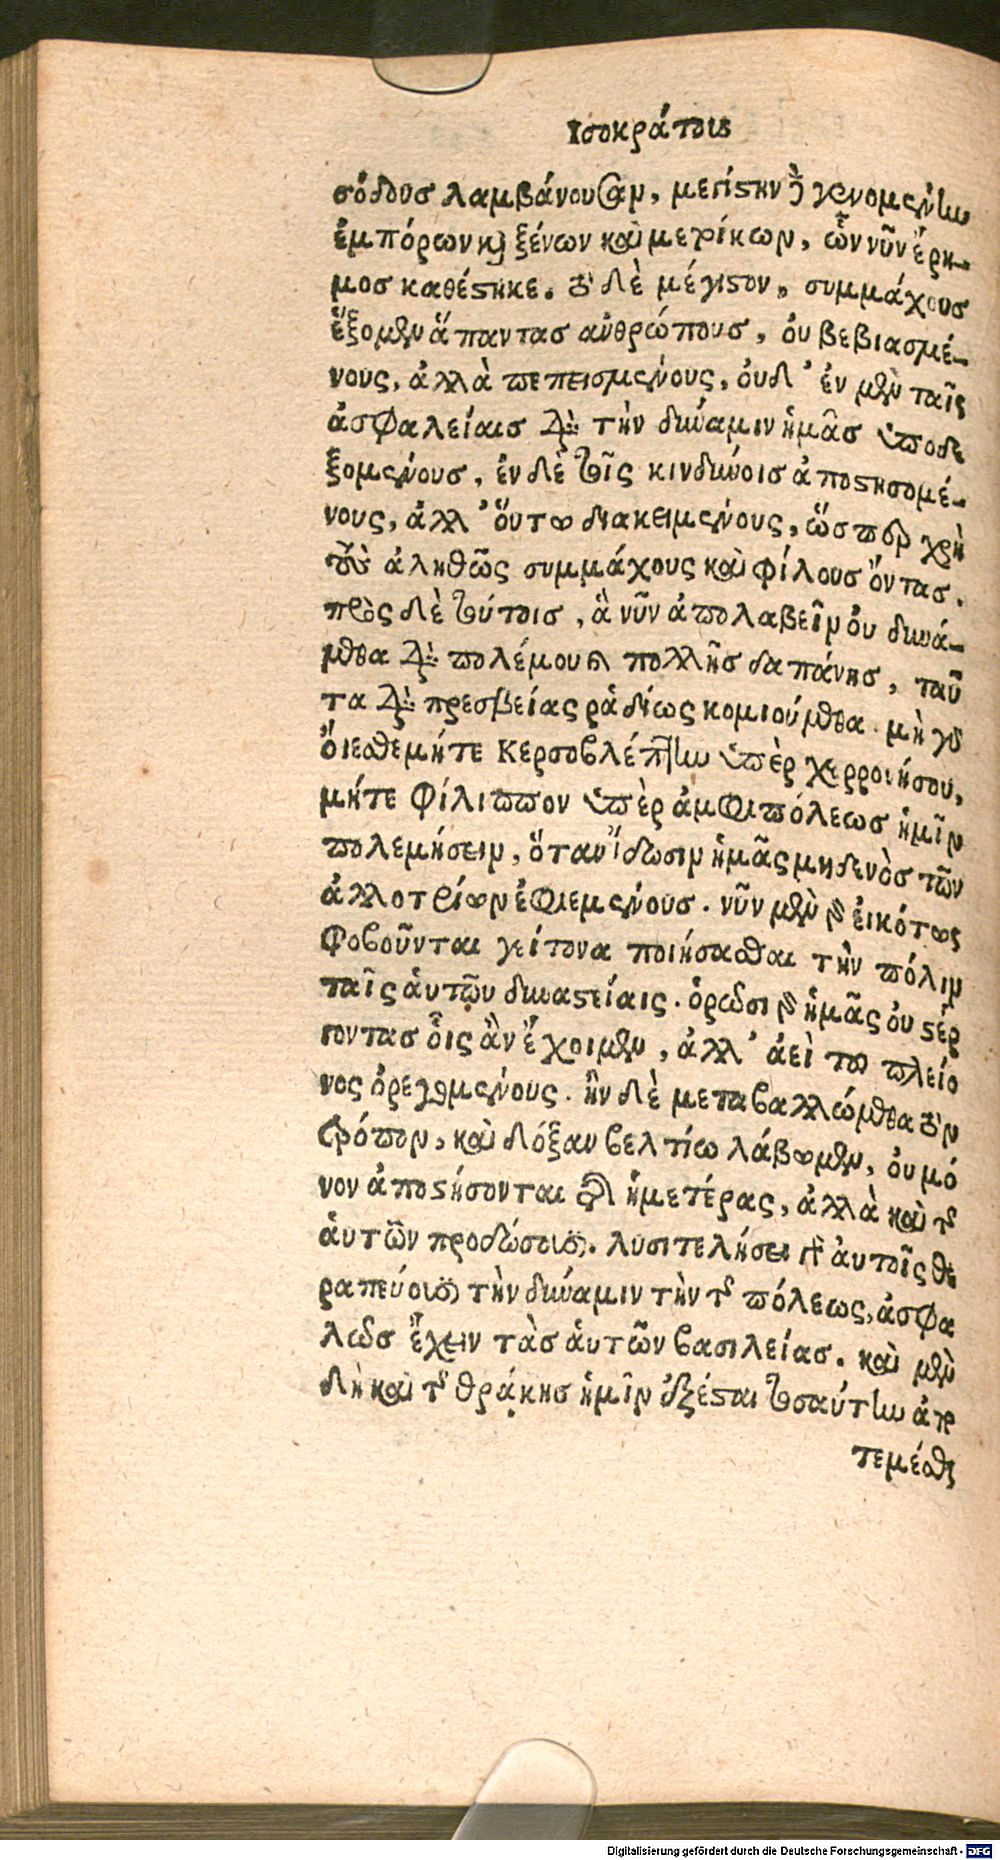 Ισοκράτους
σόδους λαμβάνουσαν, μεστὴν δὲ γενομένην
ἐμπόρων καὶ ξένων καὶ μετοίκων, ὧν νῦν ἔρη-
μος καθέστηκε. τὸ δὲ μέγιστον, συμμάχους
ἕξομεν ἅπαντας ἀνθρώπους, οὐ βεβιασμέ-
νους, ἀλλὰ πεπεισμένους, οὐδ' ἐν μὲν ταῖς
ἀσφαλείαις διὰ τὴν δύναμιν ἡμᾶς ὑποδε
ξομένους, ἐν δὲ τοῖς κινδύνοις ἀποστησομέ-
νους, ἀλλ' οὕτω διακειμένους, ὥσπερ χρὴ
τοὺς ἀληθῶς συμμάχους καὶ φίλους ὄντας.
πρὸς δὲ τούτοις, ἃ νῦν ἀπολαβεῖν οὐ δυνά-
μεθα διὰ πολέμου καὶ πολλῆς δαπάνης, ταῦ
τα διὰ πρεσβείας ῥᾳδίως κομιούμεθα. μὴ γὰρ
ὄιεσθε μήτε Κερσοβλέπτην ὑπὲρ χερρονήσου,
μήτε Φίλιππον ὑπὲρ ἀμφιπόλεως ἡμῖν
πολεμήσειν, ὅταν ἴδωσιν ἡμᾶς μηδενὸς τῶν
ἀλλοτρίων ἐφιεμένους. νῦν μὲν γὰρ εἰκότως
φοβοῦνται γείτονα ποιήσασθαι τὴν πόλιν
ταῖς αὑτῶν δυναστείαις. ὁρῶσι γὰρ ἡμᾶς οὐ στέρ
γοντας οἷς ἂν ἔχοιμεν, ἀλλ' ἀεὶ τοῦ πλείο
νος ὀρεγομένους. ἢν δὲ μεταβαλλώμεθα τὸν
τρόπον, καὶ δόξαν βελτίω λάβωμεν, οὐ μό
νον ἀποστήσονται τῆς ἡμετέρας, ἀλλὰ καὶ τῆς
αὑτῶν προσδώσουσιν. λυσιτελήσει γὰρ αὐτοῖς θε
ραπεύουσιν τὴν δύναμιν τὴν τῆς πόλεως, ἀσφα
λῶς ἔχειν τὰς αὑτῶν βασιλείας. καὶ μὲν
δὴ καὶ τῆς θρᾴκης ἡμῖν ἐξέσται τοσαύτην ἀπο
τεμέσθαι